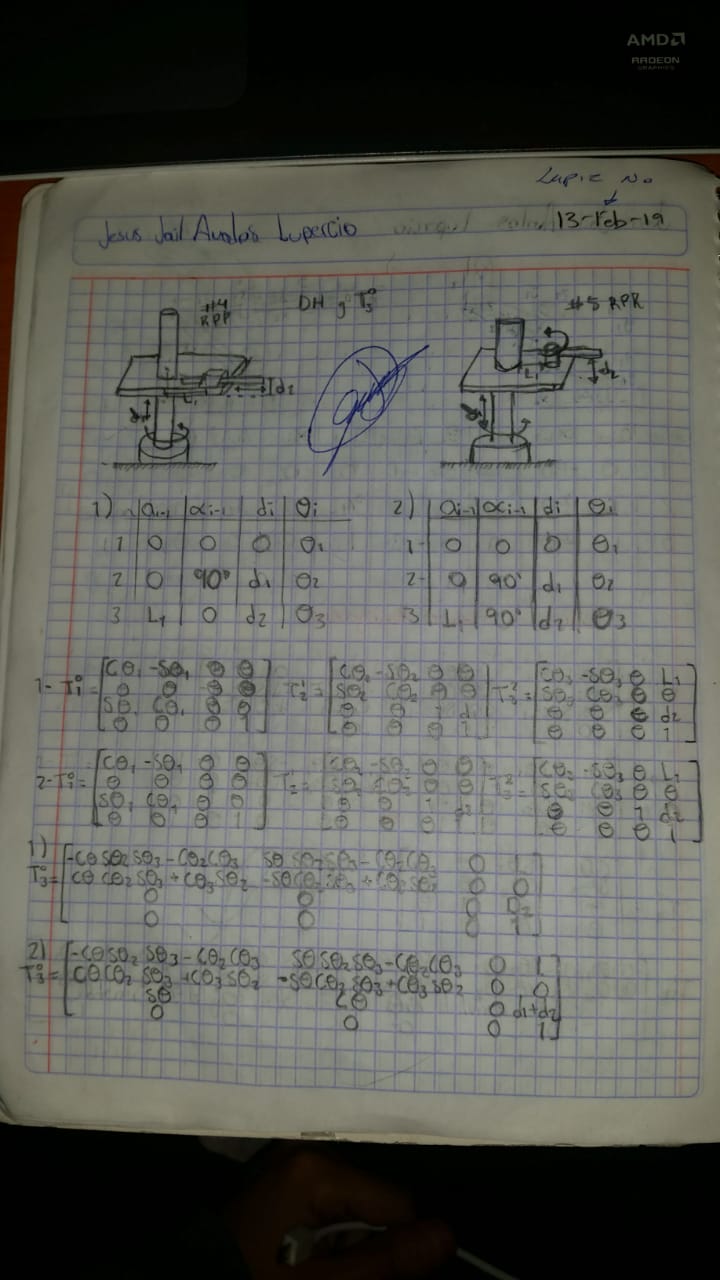 AMD
RADEON
GRAPHICS
Lapiz No
Jesus Jail Avalos Lupercio
13-Feb-19
#4
RPP
DH y T₃⁰
#5 RPR
d₂
L₁
d₁
L₁
d₂
1) aᵢ₋₁ αᵢ₋₁ dᵢ θᵢ
1 0 0 0 θ₁
2 0 90° d₁ θ₂
3 L₁ 0 d₂ θ₃
2) aᵢ₋₁ αᵢ₋₁ di θᵢ
1- 0 0 0 θ₁
2- 0 90° d₁ θ₂
3 L₁ 90° d₂ θ₃
1- T₁⁰=
Cθ₁ -Sθ₁ 0 0
0 0 0 0
Sθ₁ Cθ₁ 0 0
0 0 0 1
T₂¹=
Cθ₂ -Sθ₂ 0 0
Sθ₂ Cθ₂ 0 0
0 0 1 d
0 0 0 1
T₃²=
Cθ₃ -Sθ₃ 0 L₁
Sθ₃ Cθ₃ 0 0
0 0 0 d₂
0 0 0 1
2- T₁⁰=
Cθ₁ -Sθ₁ 0 0
0 0 0 0
Sθ₁ Cθ₁ 0 0
0 0 0 1
Cθ₂ -Sθ₂ 0 0
Sθ₂ Cθ₂ 0 0
0 0 1 d₂
0 0 0 1
Cθ₃ -Sθ₃ 0 L₁
Sθ₃ Cθ₃ 0 0
0 0 1 d₂
0 0 0 1
1)
T₃⁰=
-CθSθ₂Sθ₃-Cθ₂Cθ₃ SθSθ₂Sθ₃-Cθ₂Cθ₃ 0 1
CθCθ₂Sθ₃+Cθ₃Sθ₂ -SθCθ₂Sθ₃+Cθ₃Sθ₂ 0 0
0 0 0 D₂
0 0 0 1
2)
T₃⁰=
-CθSθ₂Sθ₃-Cθ₂Cθ₃ SθSθ₂Sθ₃-Cθ₂Cθ₃ 0 1
CθCθ₂Sθ₃+Cθ₃Sθ₂ -SθCθ₂Sθ₃+Cθ₃Sθ₂ 0 0
Sθ Cθ 0 d₁+d₂
0 0 0 1